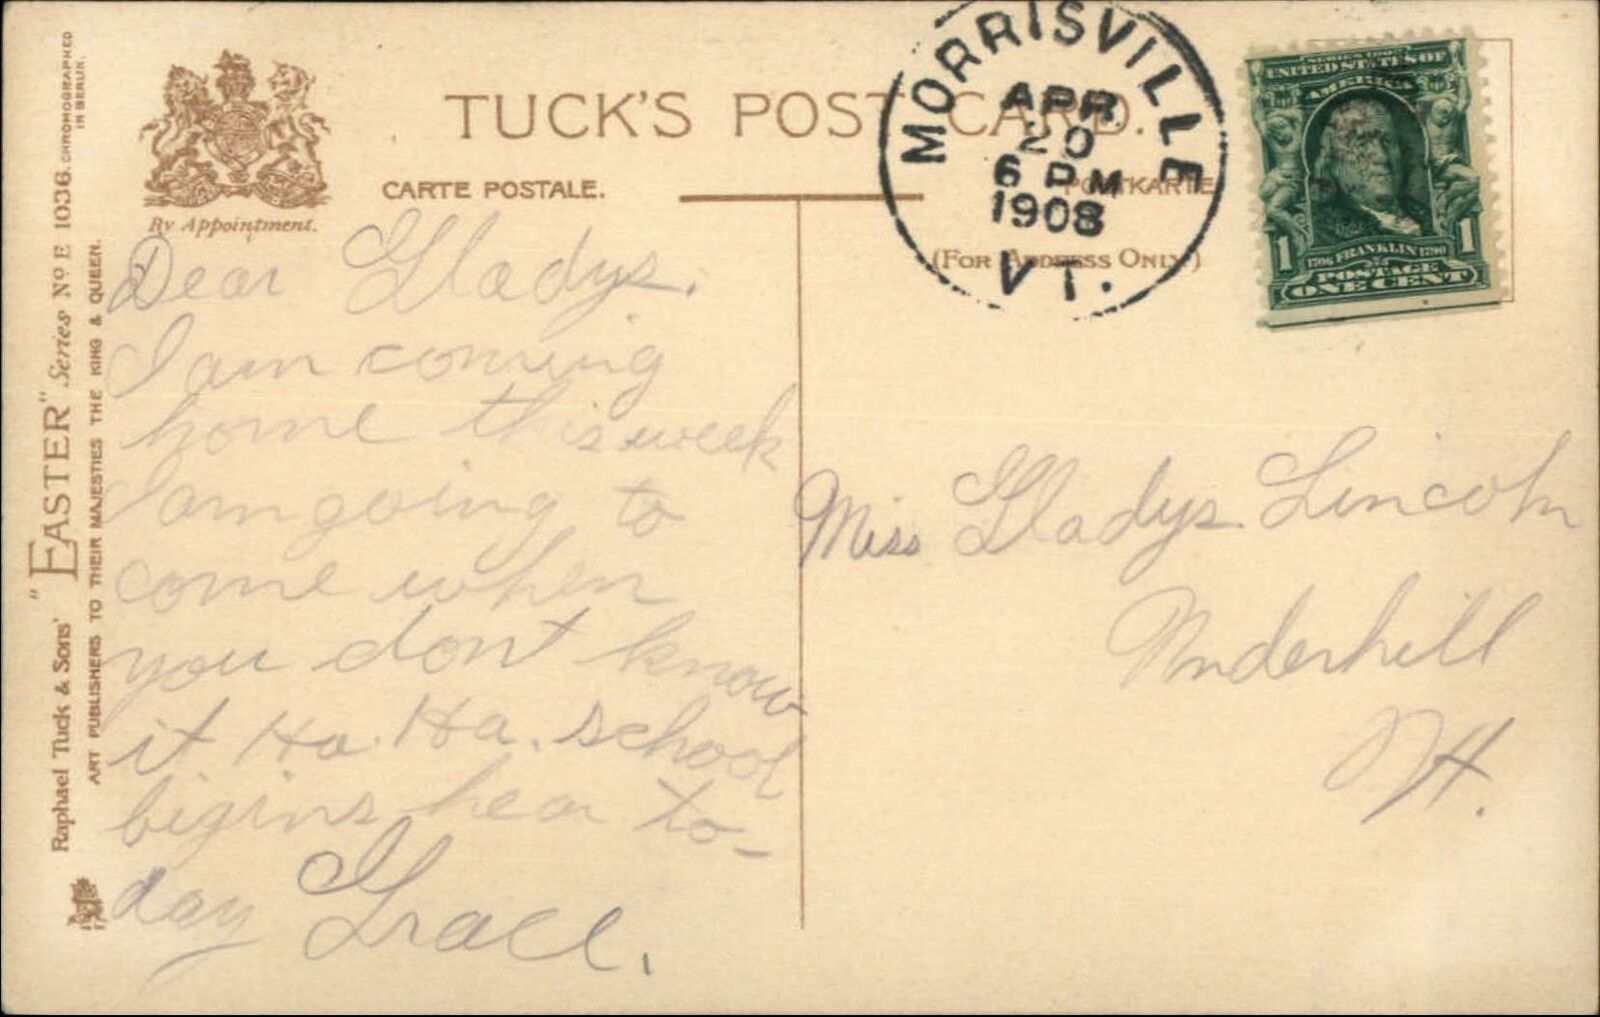 TUCK'S POST CARD.
CARTE POSTALE.
POSTKARTE
(FOR ADDRESS ONLY.)
By Appointment.
Raphael Tuck & Sons' "EASTER" Series No E 1036. CHROMOGRAPHED
IN BERLIN.
ART PUBLISHERS TO THEIR MAJESTIES THE KING & QUEEN.
MORRISVILLE
APR
20
6 PM
1908
VT.
SERIES 1902
UNITED STATES OF
AMERICA
1 1706 FRANKLIN 1790 1
POSTAGE
ONE CENT
Dear Gladys.
I am coming
home this week
I am going to
come when
you don't know
it Ha. Ha. school
begins hear to-
day Grace.
Miss Gladys Lincoln
Underhill
Vt.